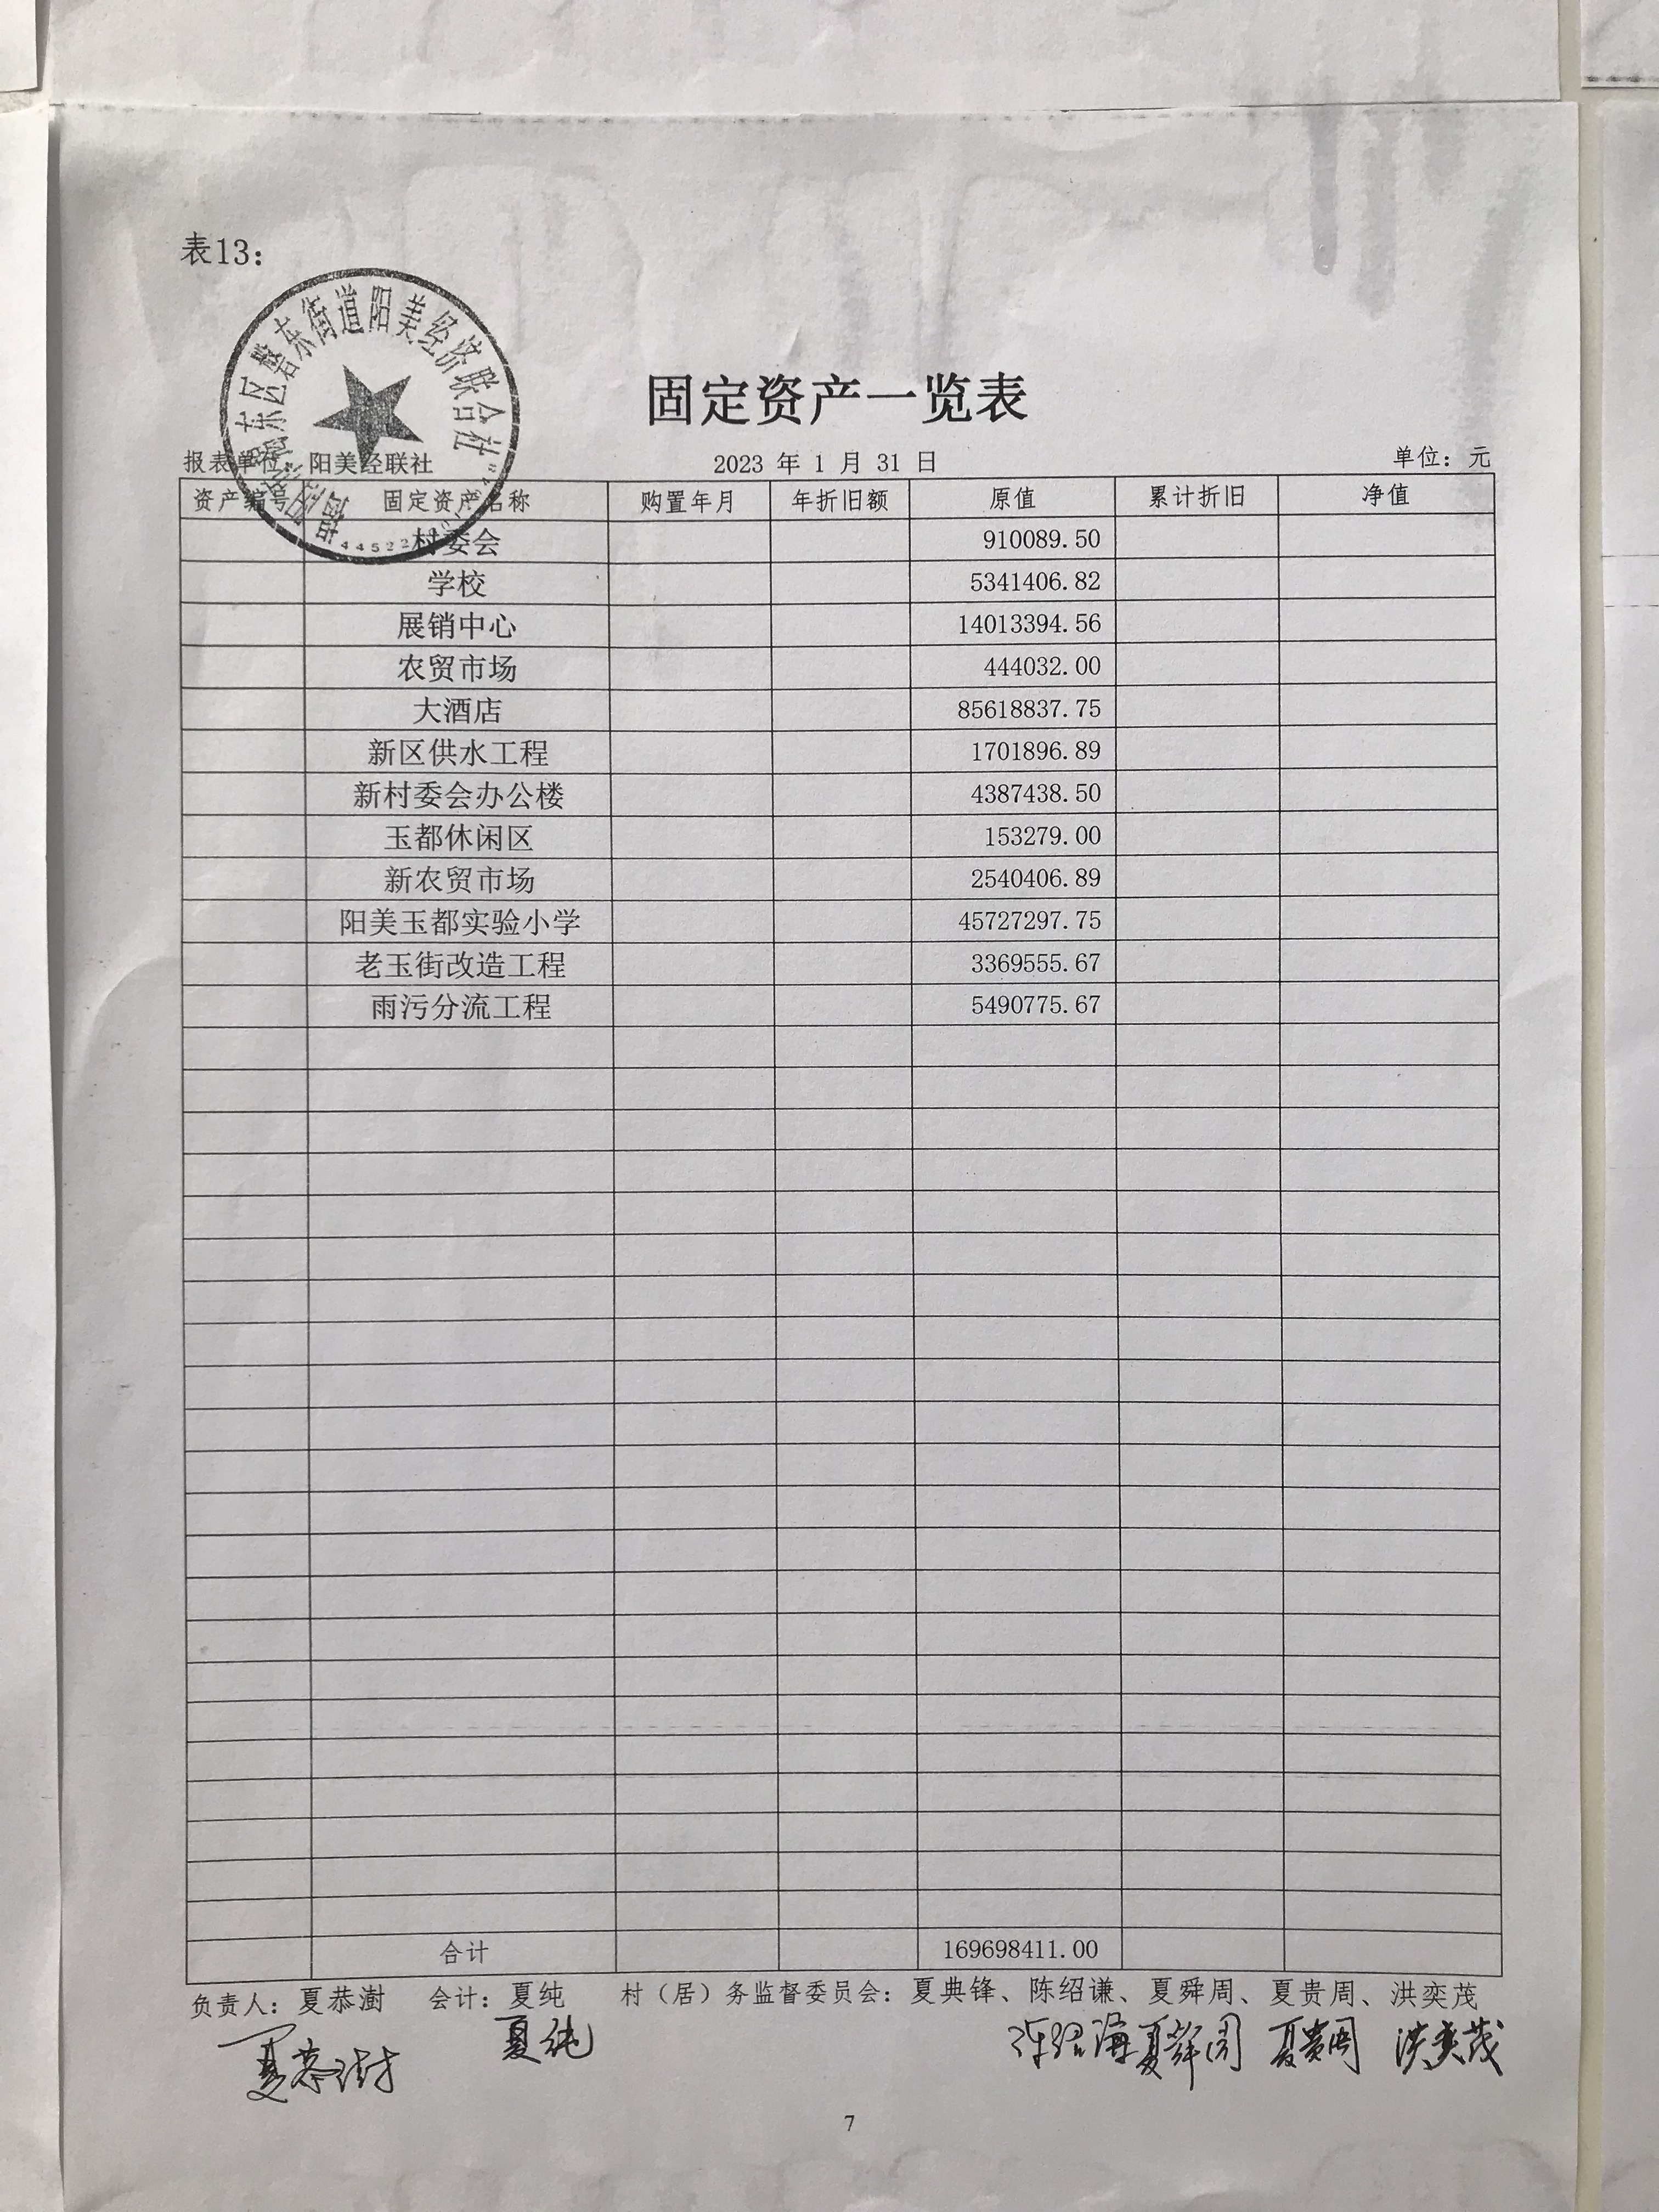 表13：
揭阳市揭东区磐东街道阳美经济联合社
固定资产一览表
报表单位：阳美经联社 2023 年 1 月 31 日 单位：元
资产编号 固定资产名称 购置年月 年折旧额 原值 累计折旧 净值
村委会 910089.50
学校 5341406.82
展销中心 14013394.56
农贸市场 444032.00
大酒店 85618837.75
新区供水工程 1701896.89
新村委会办公楼 4387438.50
玉都休闲区 153279.00
新农贸市场 2540406.89
阳美玉都实验小学 45727297.75
老玉街改造工程 3369555.67
雨污分流工程 5490775.67
合计 169698411.00
负责人：夏恭澍 会计：夏纯 村（居）务监督委员会：夏典锋、陈绍谦、夏舜周、夏贵周、洪奕茂
夏恭澍 夏纯 夏舜周 夏贵周 洪奕茂
7